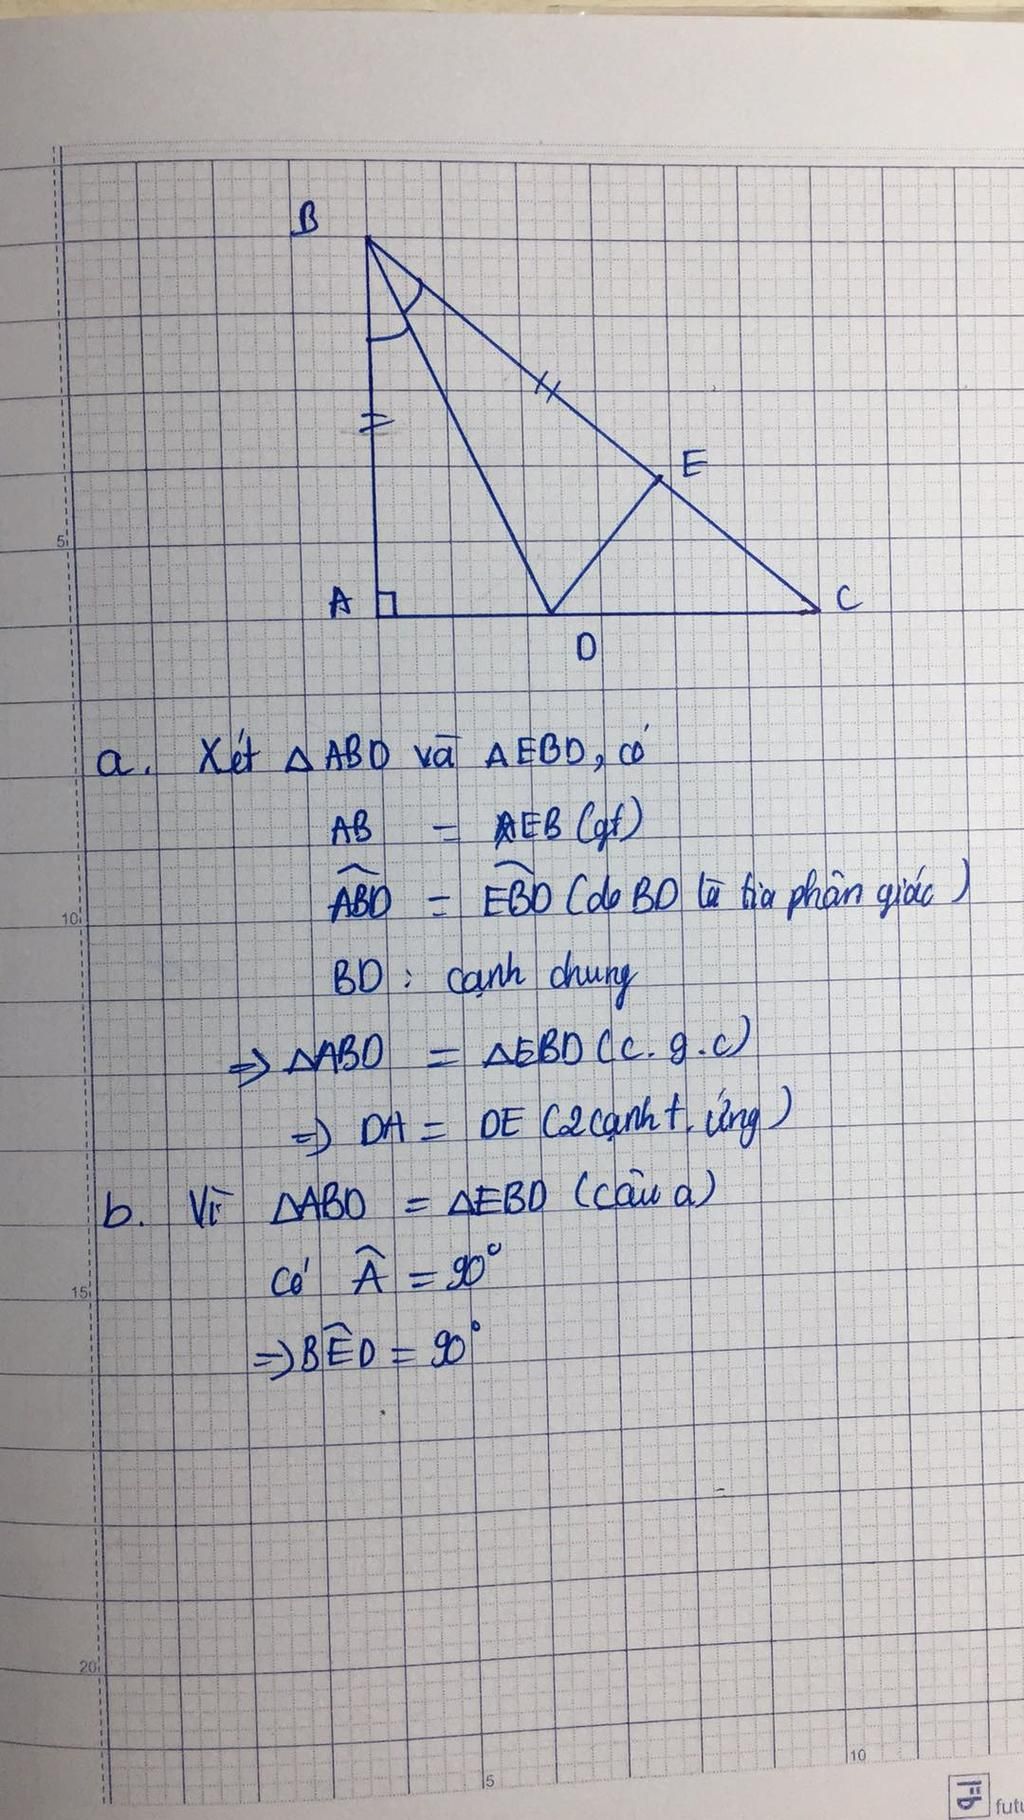 B
E
A
C
D
5
a. Xét △ABD và △EBD, có
AB = EB (gt)
10
ABD = EBD (do BD là tia phân giác)
BD : cạnh chung
⇒ △ABD = △EBD (c.g.c)
⇒ DA = DE (2 cạnh t.ứng)
b. Vì △ABD = △EBD (câu a)
15
Có Â = 90°
⇒ BÊD = 90°
20
10
5
futu